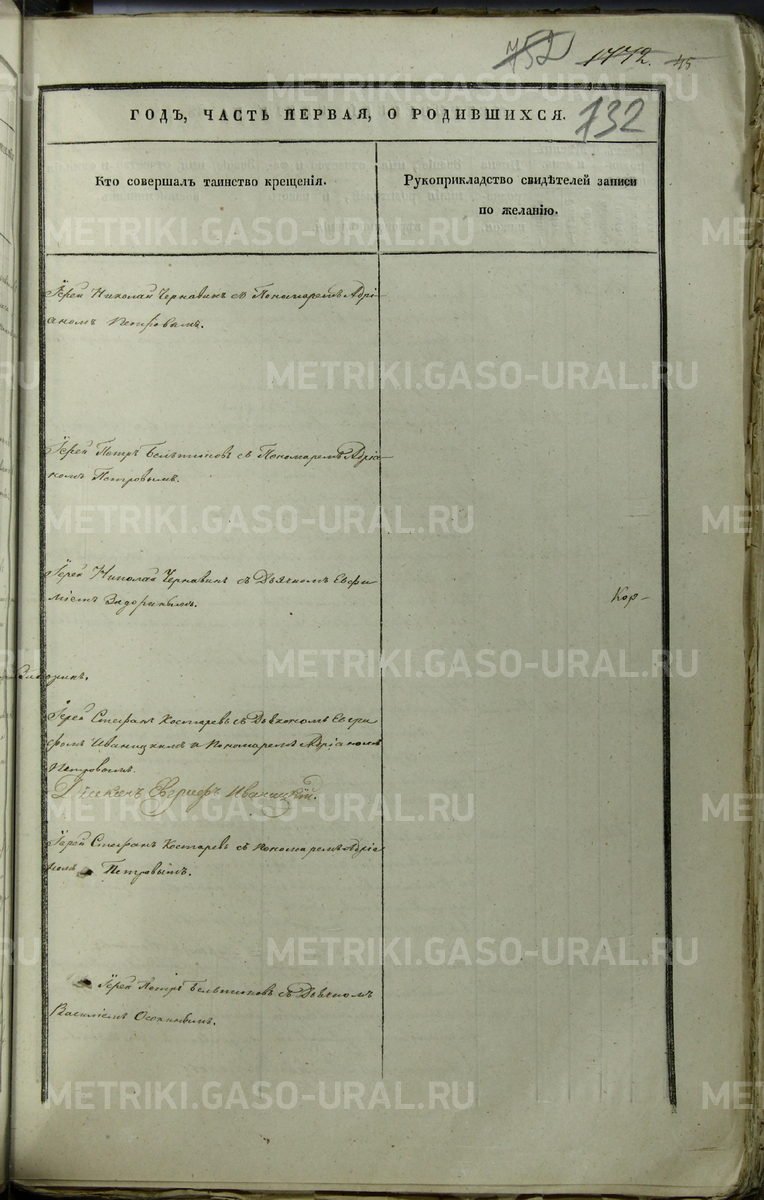 752 1772. 45
ГОДЪ, ЧАСТЬ ПЕРВАЯ, О РОДИВШИХСЯ. 732
Кто совершалъ таинство крещенія.
Рукоприкладство свидѣтелей записи
по желанію.
Іерей Николай Чернавинъ съ Пономаремъ Адрі-
аномъ Петровымъ.
Іерей Петръ Бельтиковъ съ Пономаремъ Адріа-
номъ Петровымъ.
Іерей Николай Чернавинъ съ Дьячкомъ Евфи-
міемъ
Кор-
Іерей Стефанъ Костаревъ съ Дьякономъ
Иваницкимъ и Пономаремъ Адріаномъ
Петровымъ.
Діаконъ Иваницкій.
Іерей Стефанъ Костаревъ съ Пономаремъ Адріа-
номъ Петровымъ.
Іерей Петръ Бельтиковъ съ
Василіемъ Осокинымъ.
METRIKI.GASO-URAL.RU